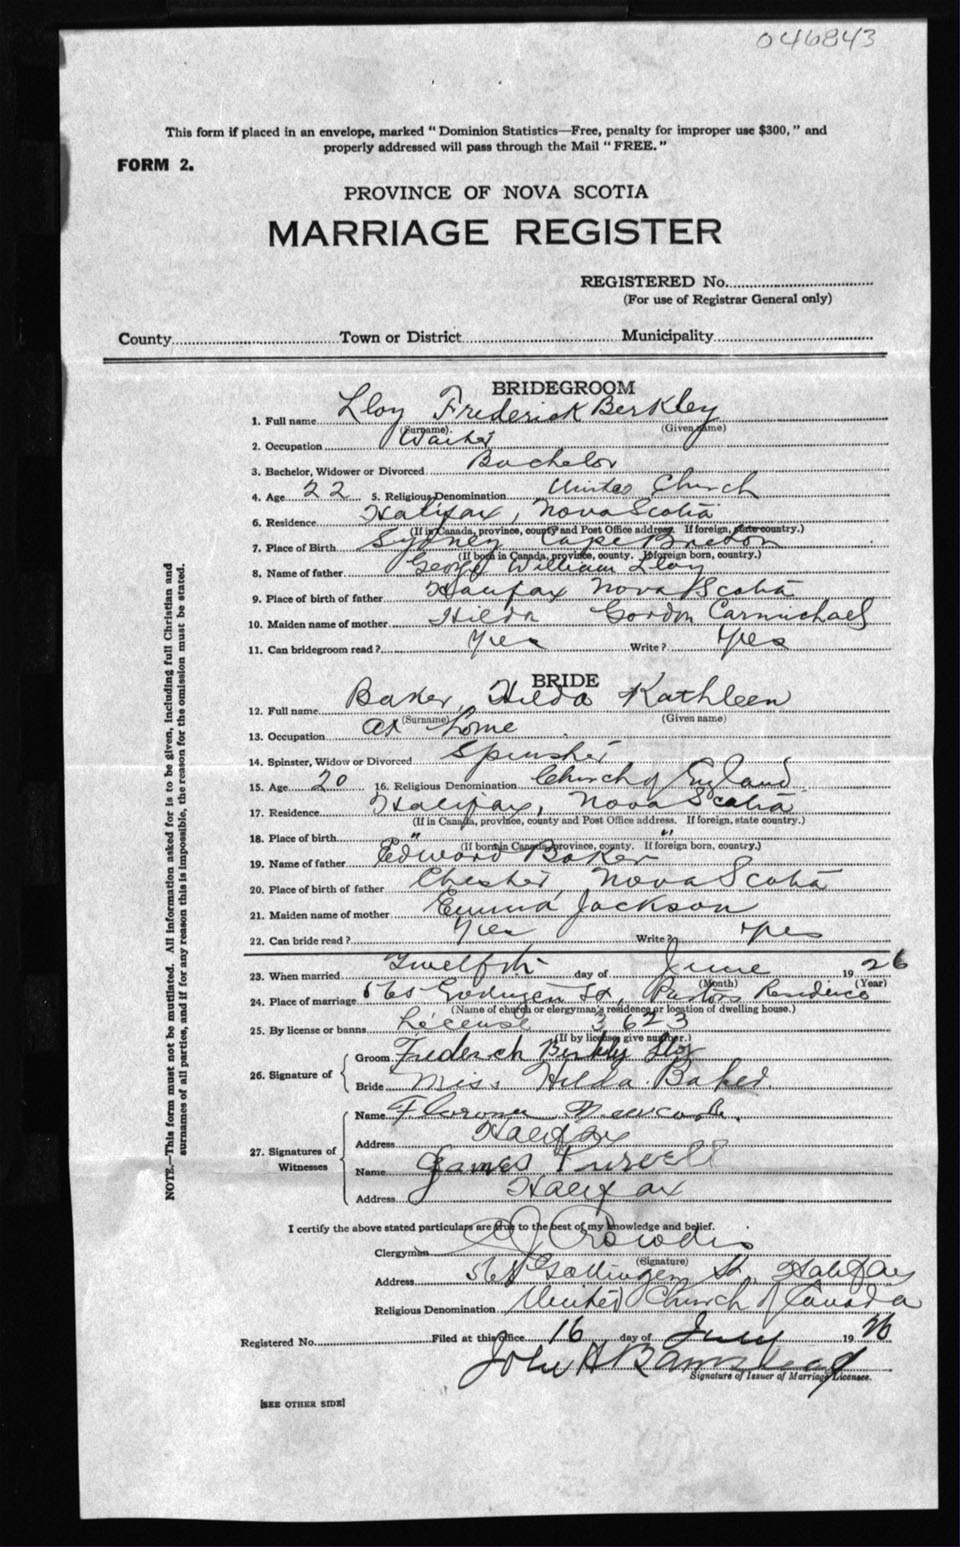 046843
This form if placed in an envelope, marked "Dominion Statistics—Free, penalty for improper use $300," and
properly addressed will pass through the Mail "FREE."
FORM 2.
PROVINCE OF NOVA SCOTIA
MARRIAGE REGISTER
REGISTERED No.
(For use of Registrar General only)
County Town or District Municipality
BRIDEGROOM
1. Full name Lloy Frederick Berkley
(Surname). (Given name)
2. Occupation
3. Bachelor, Widower or Divorced Bachelor
4. Age 22 5. Religious Denomination United Church
6. Residence Halifax, Nova Scotia
(If in Canada, province, county and Post Office address. If foreign, state country.)
7. Place of Birth Sydney Cape Breton
(If born in Canada, province, county. If foreign born, country.)
8. Name of father George William Lloy
9. Place of birth of father Halifax Nova Scotia
10. Maiden name of mother Hilda Gordon Carmichael
11. Can bridegroom read? Yes Write? Yes
BRIDE
12. Full name Baker, Hilda Kathleen
(Surname) (Given name)
13. Occupation At home
14. Spinster, Widow or Divorced Spinster
15. Age 20 16. Religious Denomination Church of England
17. Residence Halifax, Nova Scotia
(If in Canada, province, county and Post Office address. If foreign, state country.)
18. Place of birth " "
(If born in Canada, province, county. If foreign born, country.)
19. Name of father Edward Baker
20. Place of birth of father Chester, Nova Scotia
21. Maiden name of mother Emma Jackson
22. Can bride read? Yes Write? Yes
23. When married Twelfth day of June 1926
(Month) (Year)
24. Place of marriage St, Pastors Residence
(Name of church or clergyman's residence or location of dwelling house.)
25. By license or banns License 3623
(If by license give number.)
26. Signature of Groom Frederick Berkley Lloy
Bride Miss Hilda Baker
27. Signatures of Witnesses
Name
Address Halifax
Name James Purcell
Address Halifax
I certify the above stated particulars are true to the best of my knowledge and belief.
Clergyman
(Signature)
Address Gottingen St. Halifax
Religious Denomination United Church of Canada
Registered No. Filed at this office 16 day of 1926
John H Barnstead
Signature of Issuer of Marriage Licenses.
[SEE OTHER SIDE]
NOTE.—This form must not be mutilated. All information asked for is to be given, including full Christian and
surnames of all parties, and if for any reason this is impossible, the reason for the omission must be stated.